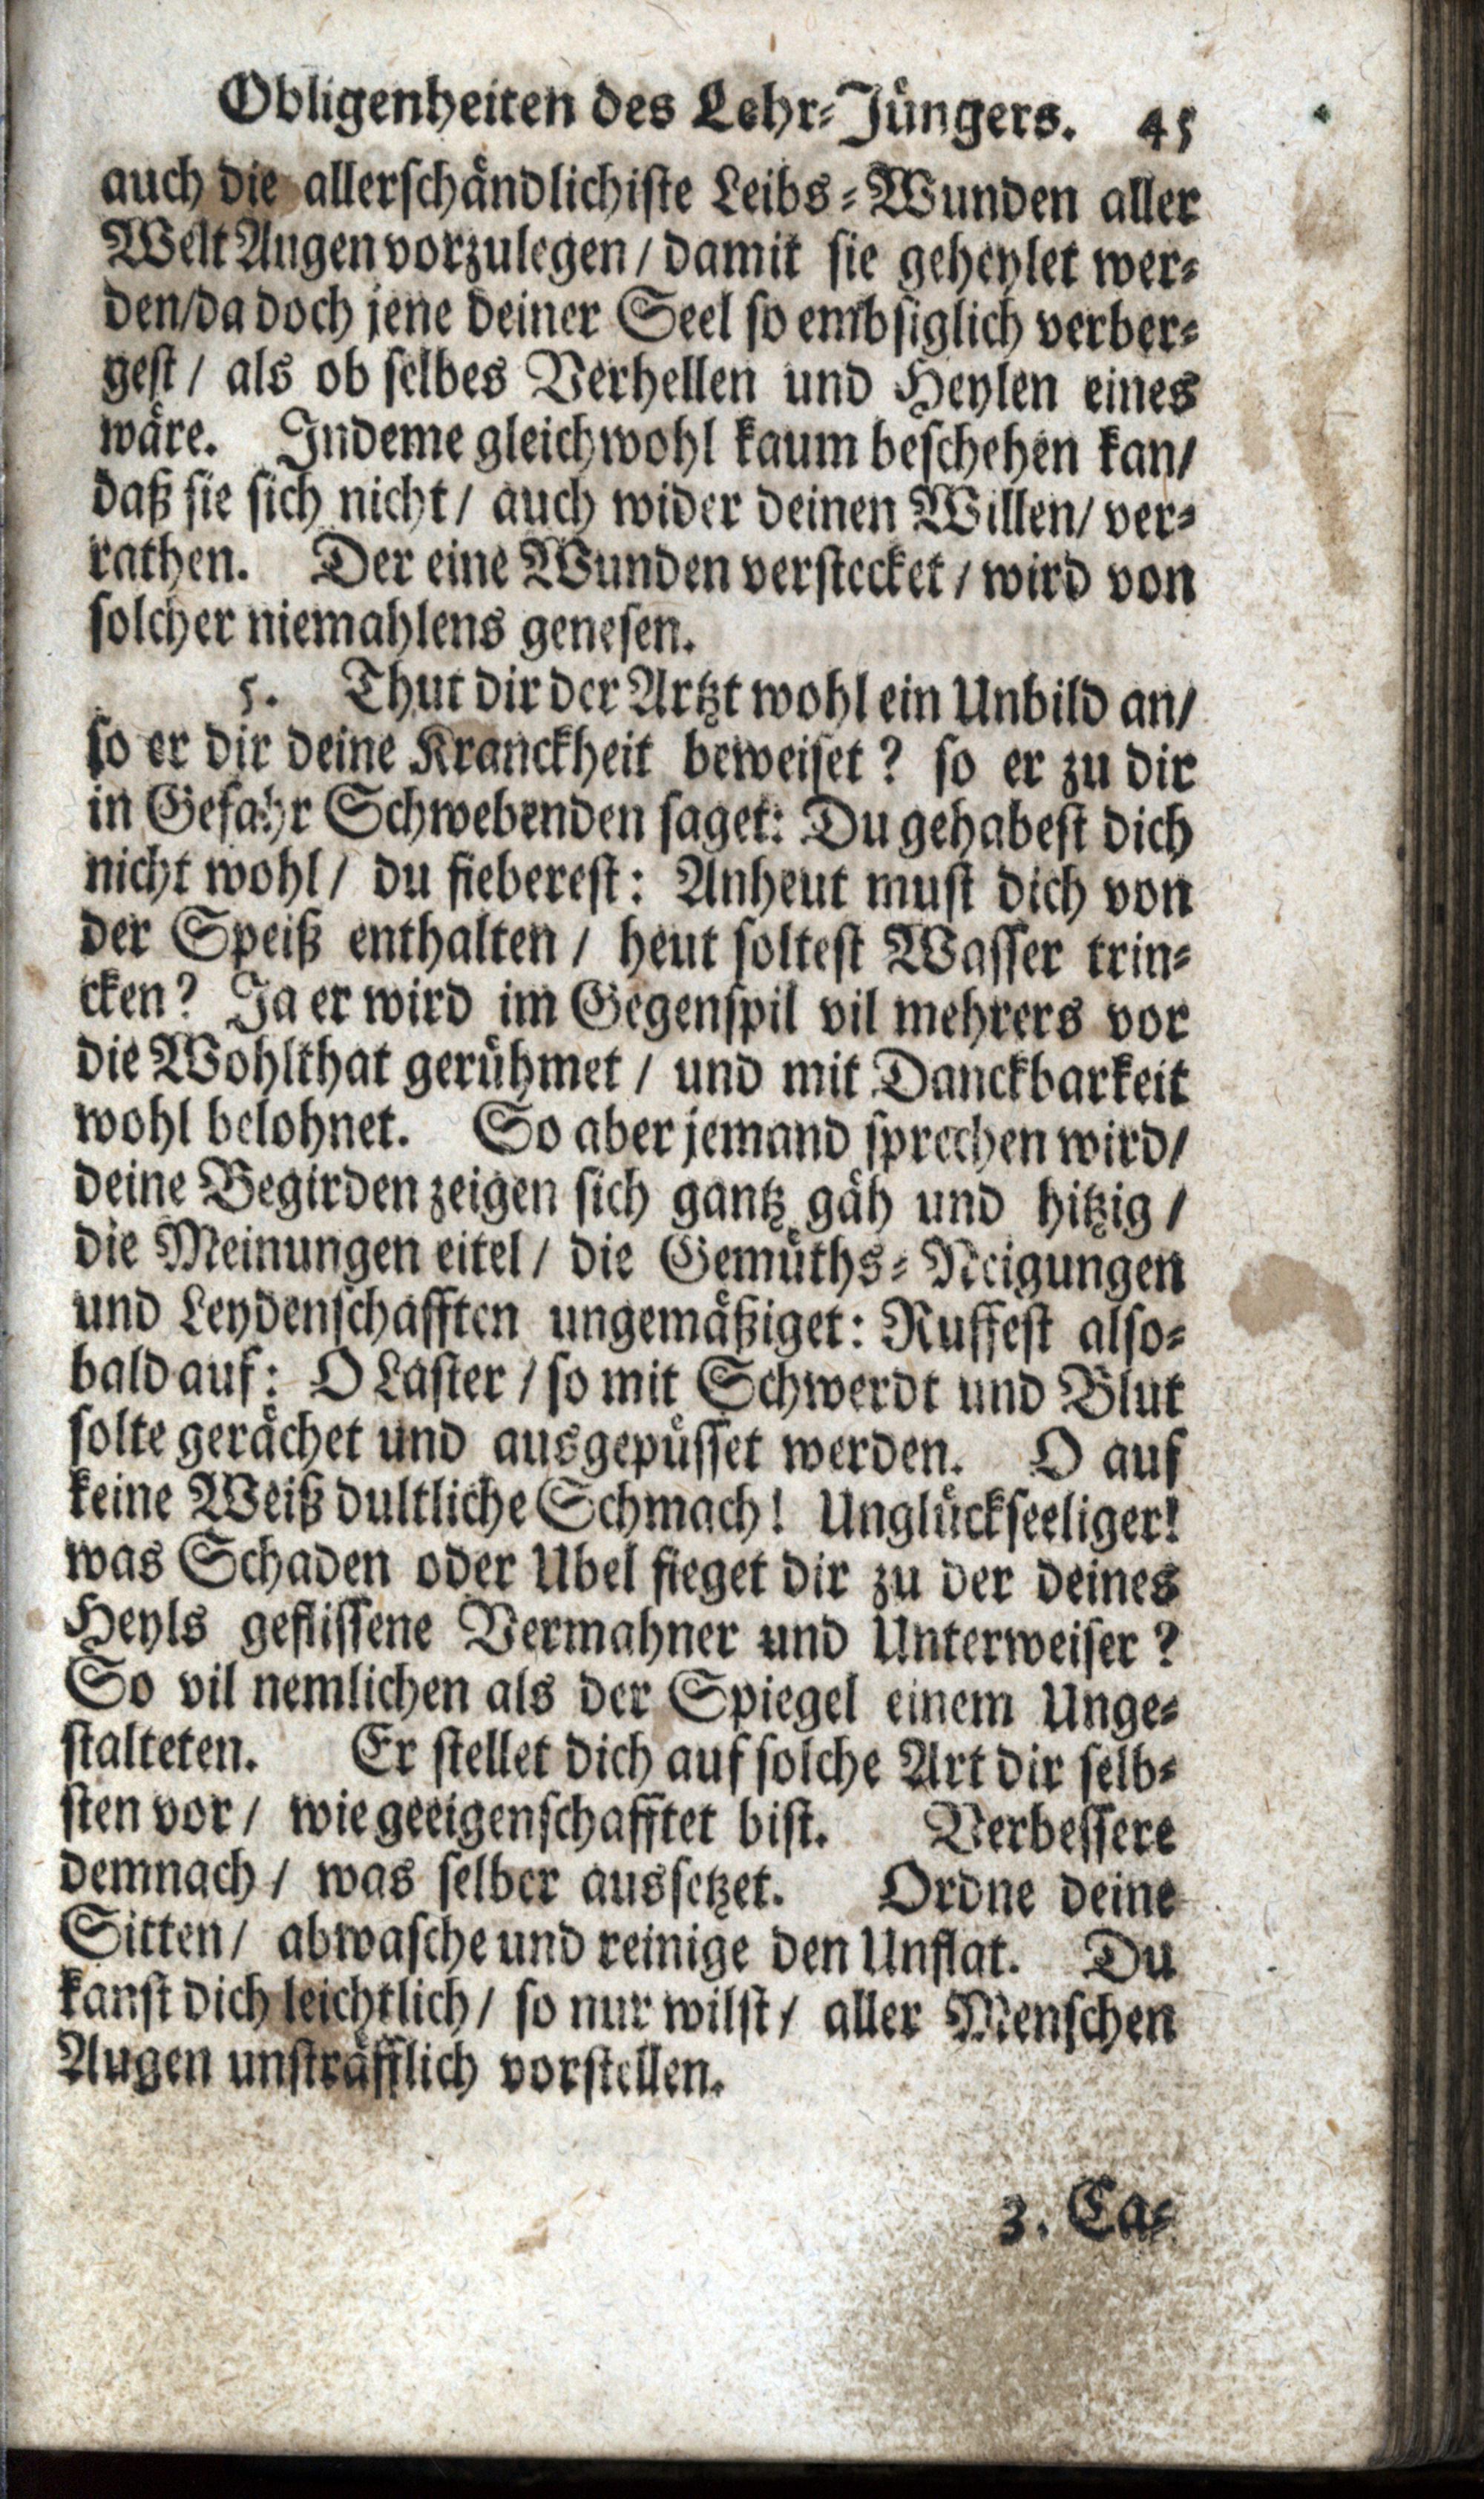 Obligenheiten des Lehr-Jüngers. 45
auch die allerschändlichiste Leibs-Wunden aller
Welt Augen vorzulegen / damit sie geheylet wer-
den/da doch jene deiner Seel so embsiglich verber-
gest / als ob selbes Verhellen und Heylen eines
wäre. Indeme gleichwohl kaum beschehen kan/
daß sie sich nicht / auch wider deinen Willen/ ver-
rathen. Der eine Wunden verstecket / wird von
solcher niemahlens genesen.
5. Thut dir der Artzt wohl ein Unbild an/
so er dir deine Kranckheit beweiset? so er zu dir
in Gefahr Schwebenden saget: Du gehabest dich
nicht wohl / du fieberest: Anheut must dich von
der Speiß enthalten / heut soltest Wasser trin-
cken? Ja er wird im Gegenspil vil mehrers vor
die Wohlthat gerühmet / und mit Danckbarkeit
wohl belohnet. So aber jemand sprechen wird/
deine Begirden zeigen sich gantz gäh und hitzig /
die Meinungen eitel / die Gemüths-Neigungen
und Leydenschafften ungemäßiget: Ruffest also-
bald auf: O Laster / so mit Schwerdt und Blut
solte gerächet und ausgepüsset werden. O auf
keine Weiß dultliche Schmach! Unglückseeliger!
was Schaden oder Ubel fieget dir zu der deines
Heyls geflissene Vermahner und Unterweiser?
So vil nemlichen als der Spiegel einem Unge-
stalteten. Er stellet dich auf solche Art dir selb-
sten vor / wie geeigenschafftet bist. Verbessere
demnach / was selber aussetzet. Ordne deine
Sitten / abwasche und reinige den Unflat. Du
kanst dich leichtlich / so nur wilst / aller Menschen
Augen unsträfflich vorstellen.
3. Ca-